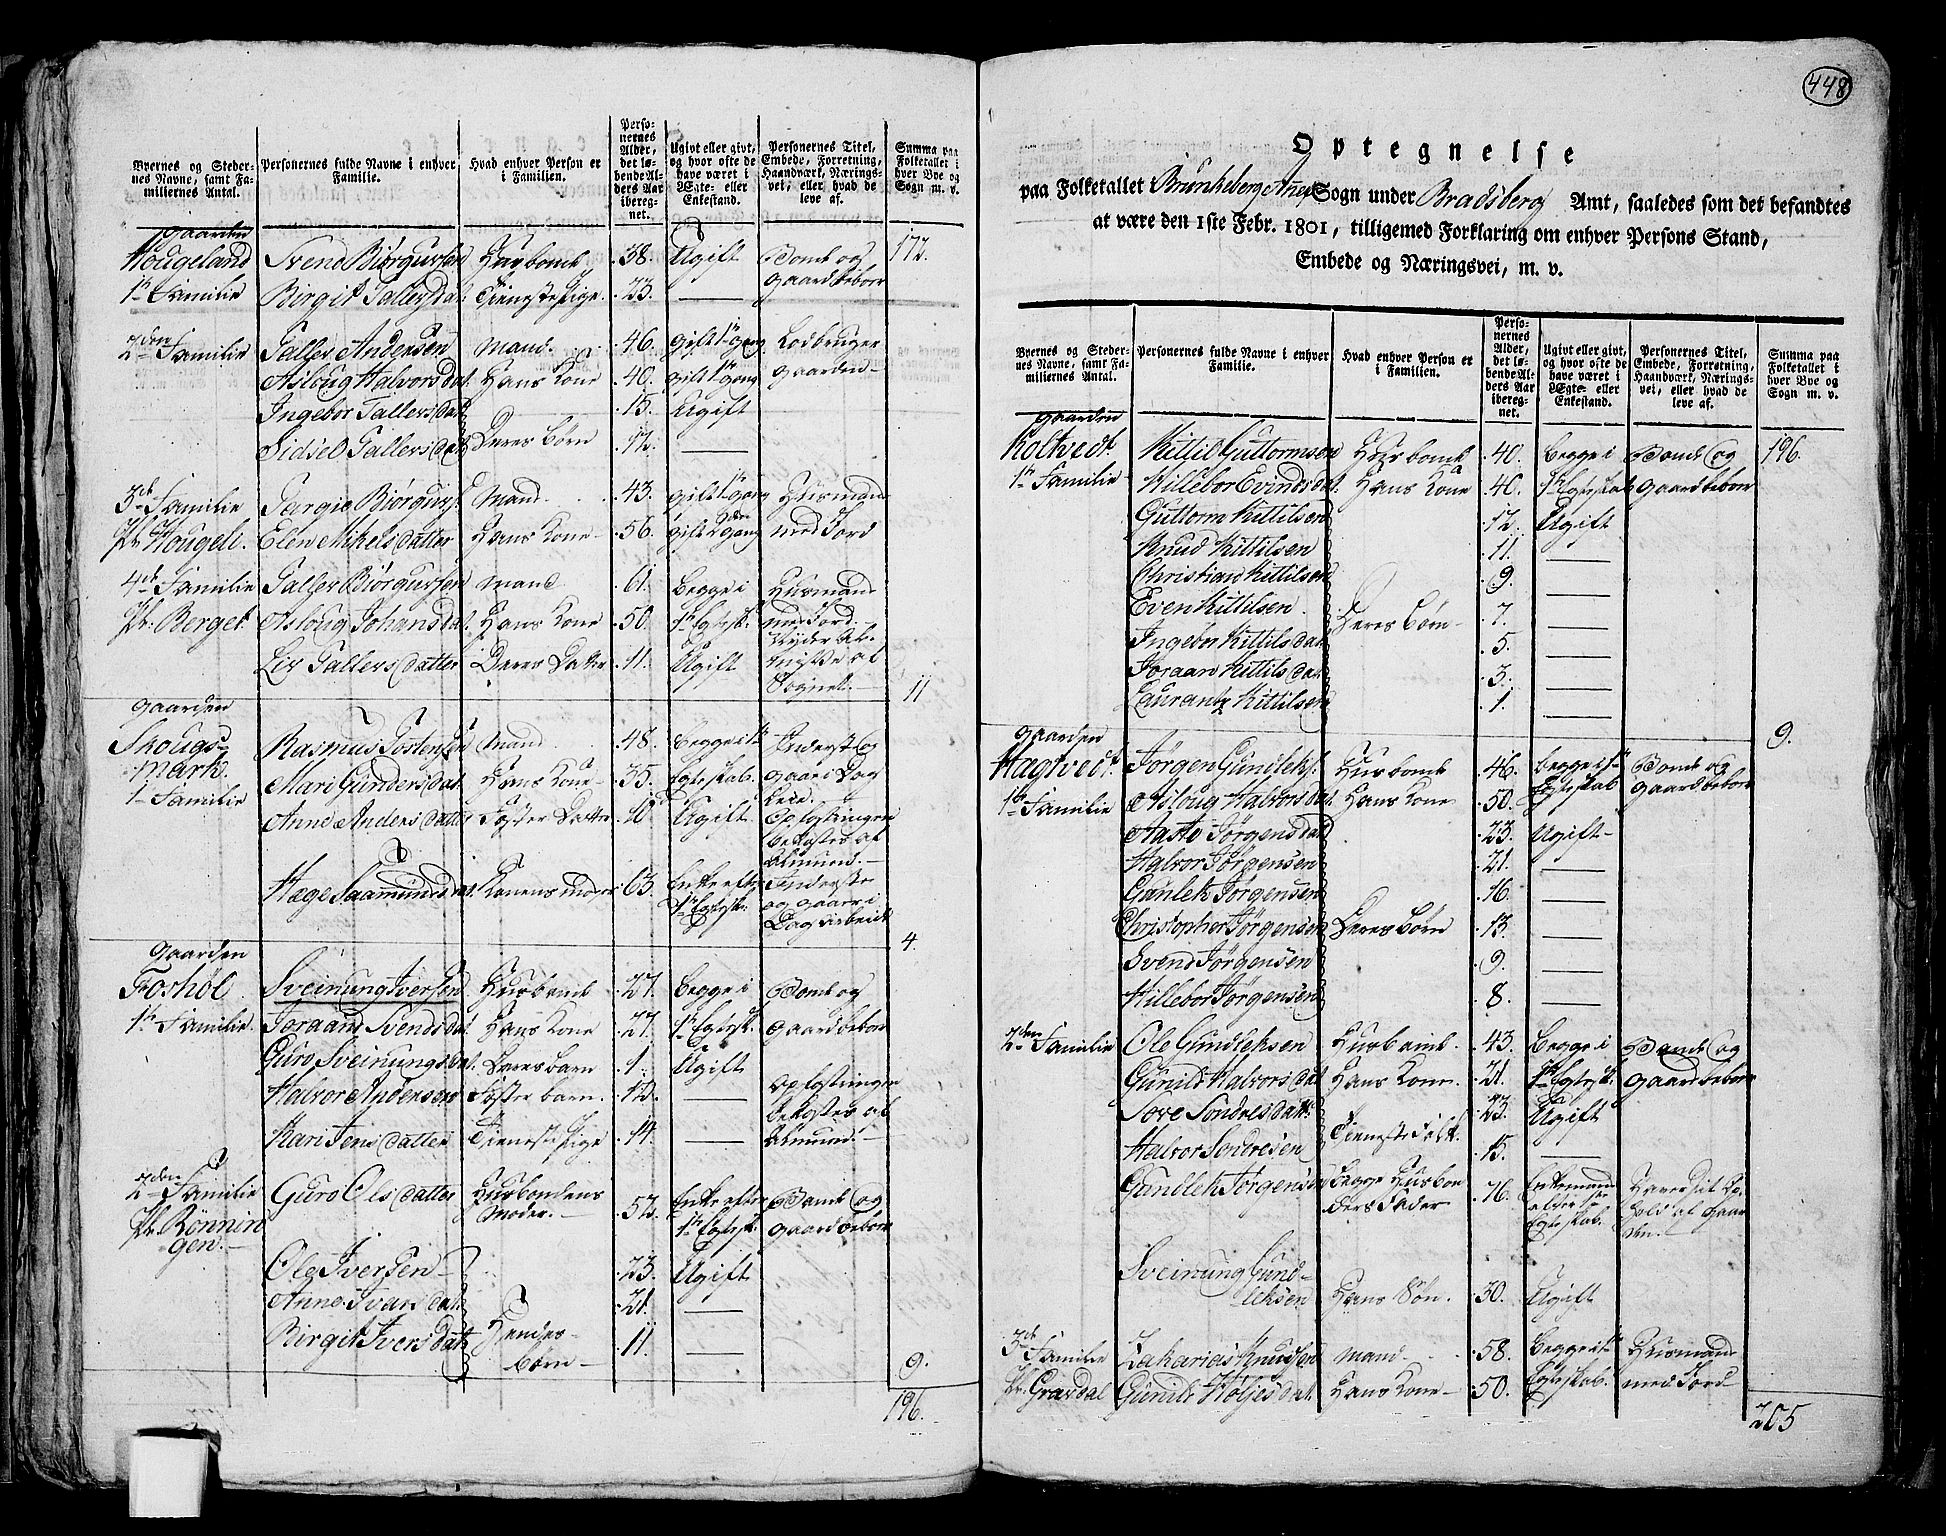 Byernes og Steder- nes Navne, samt Fa- miliernes Antal.
Personernes fulde Navne i enhver Familie.
Hvad enhver Person er i Familien.
Perso- nernes Alder, det lø- bende Al- ders Aar iberegnet.
Ugivt eller givt, og hvor ofte de have været i Egte- eller Enkestand.
Personernes Titel, Embede, Forretning, Haandværk, Nærings- vei, eller hvad de leve af.
Summa paa Folketallet i hver Bye og Sogn m. v.
Gaarden
Hougeland Svend Biørgufsen Husbonde 38. Ugift Bonde og 172.
1te Familie Birgit Tallefsdat. Tieneste Pige 23. — Gaardbeboer
2den Familie Tallef Andersen Mand 46. gift 1te gang Lodbruger
Asloug Halvorsdat. Hans Kone 40. gift 1te gang Gaarden
Ingebor Tallefsdat. 15. Ugift
Sidsel Tallefsdat. Deres Børn 12. —
3de Familie Targie Biørgufs. Mand 43. gift 1te gang Husmand
Pl. Hougeli. Elen Mikelsdatter Hans Kone 56. gift 2den gang med Jord
4de Familie Tallef Biørgufsen Mand 61. Begge i Husmand
Pl. Berget Asloug Johansdat. Hans Kone 50. 1te Egtesk. med Jord.
Liv Tallefsdatter Deres Datter 11. Ugift
Sognet. 11
Gaarden
Skougs-
mark. Rasmus Tostensen Mand 48. Begge i 1te
1te Familie Mari Gundersdat. Hans Kone 35. Egteskab.
Anne Andersdatter Foster Datter 10 Ugift
Hæge Saamundsdat. Konens Moder 63. Enke efter 1te Egtesk.
4.
Gaarden
Foshol Sveinung Iversen Husbonde 27. Begge i Bonde og
1te Familie. Joraand Svendsdat. Hans Kone 27. 1te Egtesk. Gaardbeboer
Guro Sveinungsdat. Deres Barn 1. Ugift
Halvor Andersen Foster Barn. 12. — Opfostringen bekostes af Almuen.
Kari Jensdatter Tieneste Pige 14. —
2den Familie Guro Olsdatter Husbondens Moder. 52. Enke efter 1te Egtesk. Bonde og Gaardbeboer
Pl. Rønnin
gen.
Ole Iversen 23. Ugift
Anne Ivarsdat. 21. —
Birgit Iversdat. Hendes Børn 11. —
9.
196.
448
Optegnelse
paa Folketallet Brunkeberg Anex Sogn under Bradsberg Amt, saaledes som det befandtes
at være den 1ste Febr. 1801, tilligemed Forklaring om enhver Persons Stand,
Embede og Næringsvei, m. v.
Byernes og Steder- nes Navne, samt Fa- miliernes Antal.
Personernes fulde Navne i enhver Familie.
Hvad enhver Person er i Familien.
Perso- nernes Alder, det lø- bende Al- ders Aar iberegnet.
Ugivt eller givt, og hvor ofte de have været i Egte- eller Enkestand.
Personernes Titel, Embede, Forretning, Haandværk, Nærings- vei, eller hvad de leve af.
Summa paa Folketallet i hver Bye og Sogn m. v.
Gaarden
Kolkvedt Kittil Guttormsen Husbonde 40. Begge i Bonde og 196.
1te Familie Killebor Evindsdat. Hans Kone 40. 1te Egteskab Gaardbeboer
Guttorm Kittilsen 12. Ugift
Knud Kittilsen 11. —
Christian Kittilsen 9. —
Even Kittilsen. Deres Børn 7. —
Ingebor Kittilsdat. 5. —
Joraan Kittilsdat. 3. —
Laurantz Kittilsen 1. —
9.
Gaarden
Hagtvedt. Jørgen Gunleks. Husbonde 46. Begge i 1te Bonde og
1te Familie Asloug Halvorsdat. Hans Kone 50. Egteskab Gaardbeboer
Aaste Jørgensdat 23. Ugift
Halvor Jørgensen 21. —
Gunlek Jørgensen 16. —
Christopher Jørgensen Deres Børn 13. —
Svend Jørgensen 9. —
Hillebor Jørgensen 8. —
2den Familie Ole Gundleksen Husbonde 43. Begge i Bonde og
Gunild Halvorsdat Hans Kone 21. 1te Egtesk. Gaardbeboer
Tove Sondresdatt. 23. Ugift
Halvor Sondresen Tieneste Folk. 15. —
Gundlek Jørgensen Begge Husbon ders Fader 76. Enkemand
Sveinung Gund-
leksen Hans Søn. 30. Ugift
3de Familie Zakarias Knudsen Mand 58. Begge i 1te Husmand
Pl. Grasdal Gunild Holjesdat. Hans Kone 50. Egteskab. med Jord
205